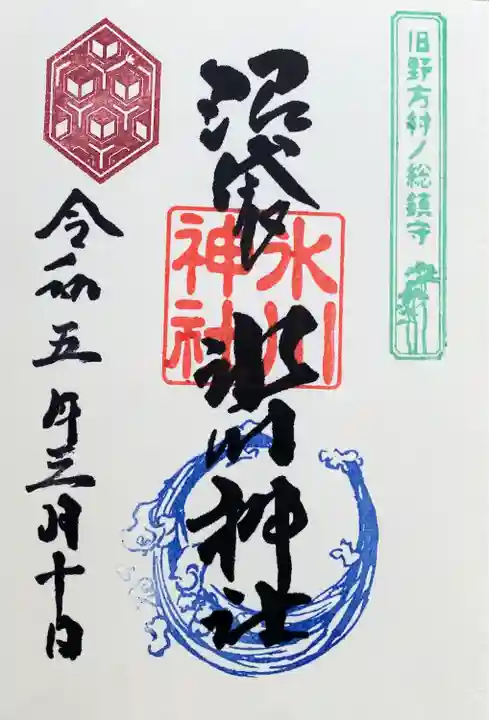 旧野方村ノ総鎮守
沼袋氷川神社
氷川神社
令和五年三月十日